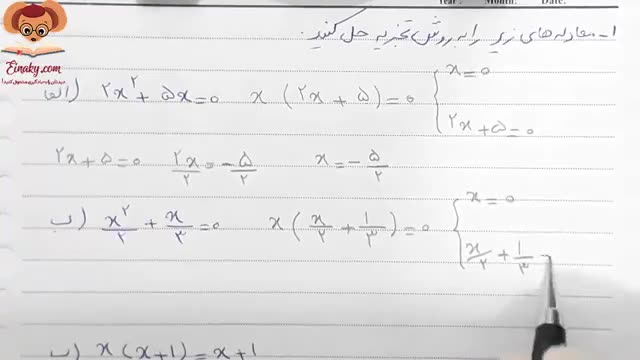 Year: Month: Date:
Einaky.com
۱- معادله های زیر را به روش تجزیه حل کنید.
الف) ۲x² + ۵x = ۰ x (۲x + ۵) = ۰ { x = ۰
۲x + ۵ = ۰
۲x + ۵ = ۰ ۲x/۲ = -۵/۲ x = -۵/۲
ب) x²/۲ + x/۳ = ۰ x (x/۲ + ۱/۳) = ۰ { x = ۰
x/۲ + ۱/۳ =
پ) x(x+۱) = x+۱